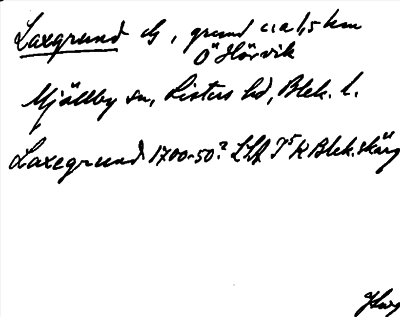 Laxgrund G, grund c:a 1,5 km
Ö Hörvik
Mjällby sn, Listers hd, Blek. l.
Laxegrund 1700-50? LSA T5 K Blek. skärg